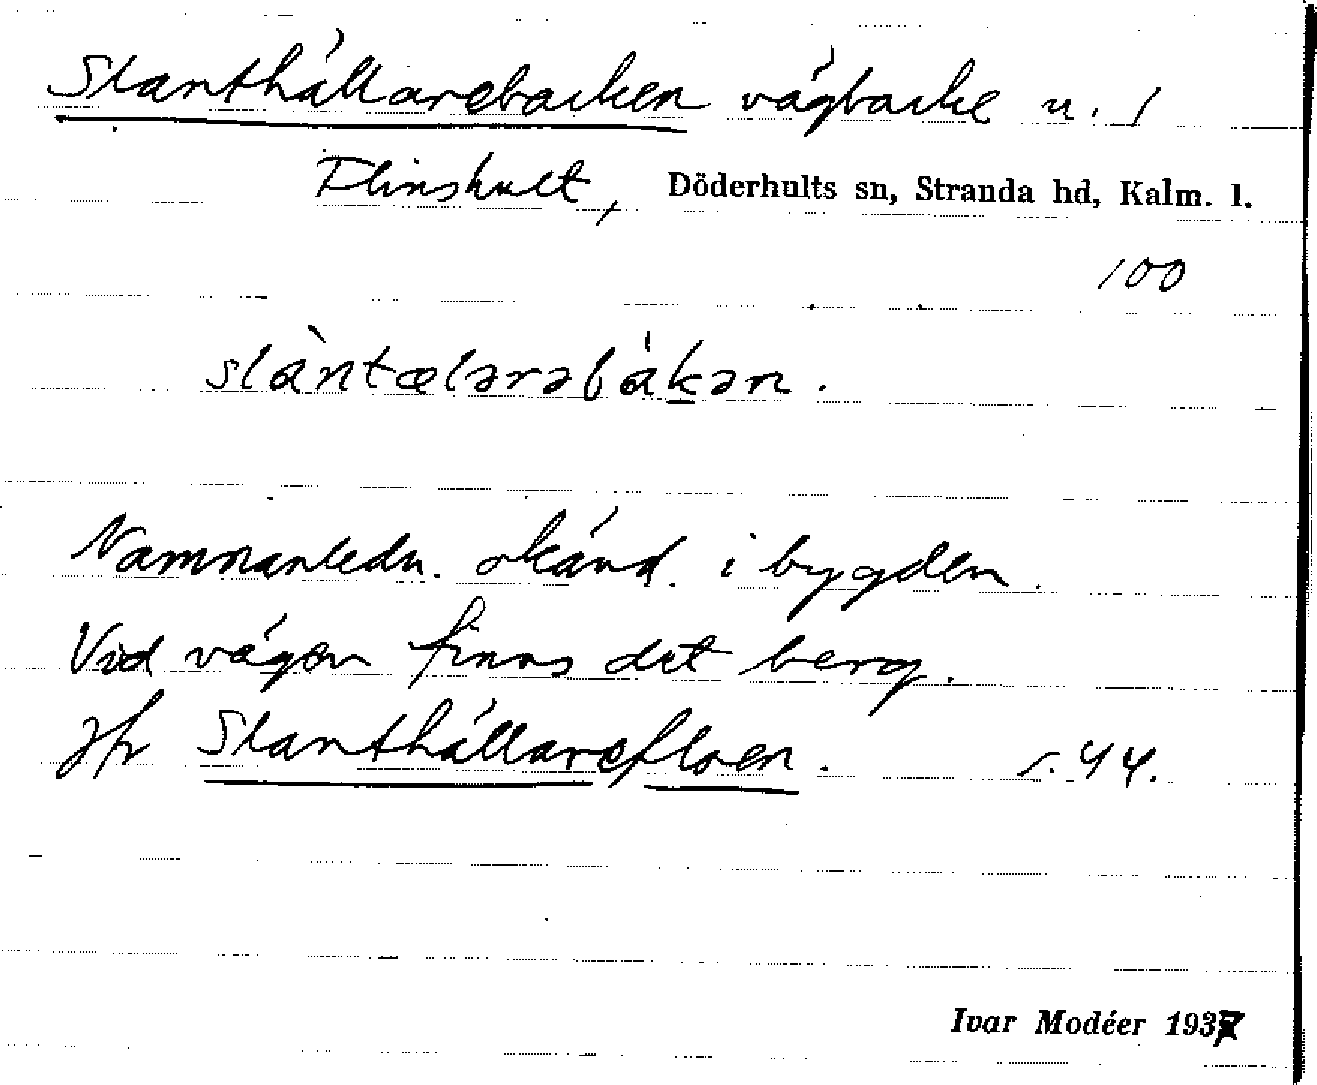 Slanthållarebacken vägbacke u. /
Flinshult, Döderhults sn, Stranda hd, Kalm. l.
100
slàntælərəbákən.
Namnanledn. okänd. i bygden.
Vid vägen finns det berg.
Jfr Slanthållarefloen. s. 44.
Ivar Modéer 1937